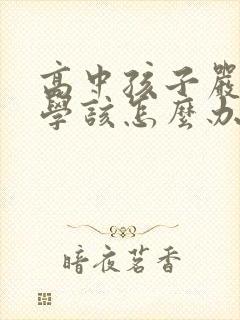 高中孩子嚴
學該怎麼办
暗夜茗香